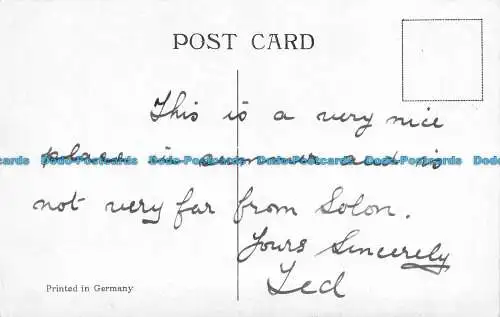 POST CARD
This is a very nice
place in summer and is
Dodo-Postcards Dodo-Postcards Dodo-Postcards Dodo-Postcards
not very far from Solon.
Yours Sincerely
Ted
Printed in Germany